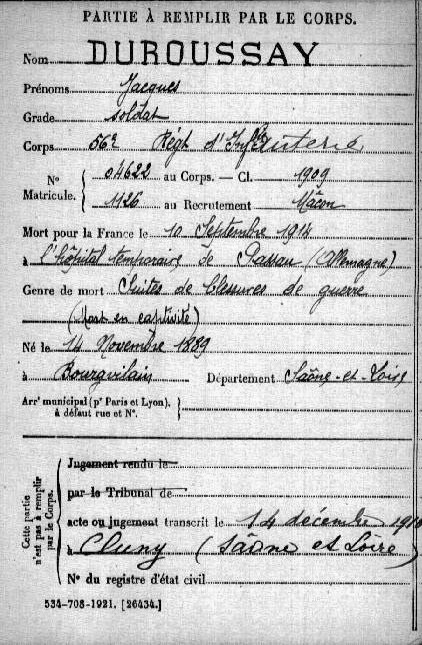 PARTIE À REMPLIR PAR LE CORPS.
Nom DUROUSSAY
Prénoms Jacques
Grade soldat
Corps 56e Régt d'Infanterie
N° Matricule. 04622 au Corps. — Cl. 1909
1126 au Recrutement Mâcon
Mort pour la France le 10 Septembre 1914
à l'hôpital temporaire de Passau (Allemagne)
Genre de mort Suites de blessures de guerre
(Mort en captivité)
Né le 14 Novembre 1889
à Bourgvilain Département Saône-et-Loire
Arrt municipal (pr Paris et Lyon),
à défaut rue et N°.
Cette partie n'est pas à remplir par le Corps.
Jugement rendu le
par le Tribunal de
acte ou jugement transcrit le 14 décembre
à Cluny (Saône et Loire)
N° du registre d'état civil
534-708-1921. [26434.]